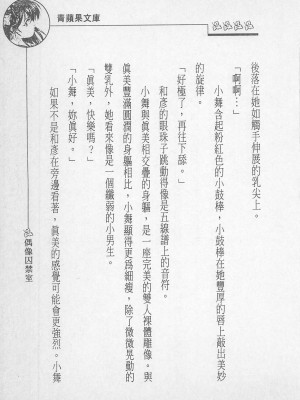 青蘋果文庫
後落在她如觸手伸展的乳尖上。
「啊啊⋯」
小舞含起粉紅色的小鼓棒，小鼓棒在她豐厚的唇上敲出美妙
的旋律。
「好極了，再往下舔。」
和彥的眼珠子跳動得像是五線譜上的音符。
小舞與眞美相交疊的身軀，是一座完美的雙人裸體雕像。與
眞美豐滿圓潤的身軀相比，小舞顯得更爲細瘦，除了微微晃動的
雙乳外，她看來像是一個纖弱的小男生。
「眞美，快樂嗎？」
「小舞，妳眞好。」
如果不是和彥在旁邊看著，眞美的感覺可能會更強烈。小舞
偶像囚禁室